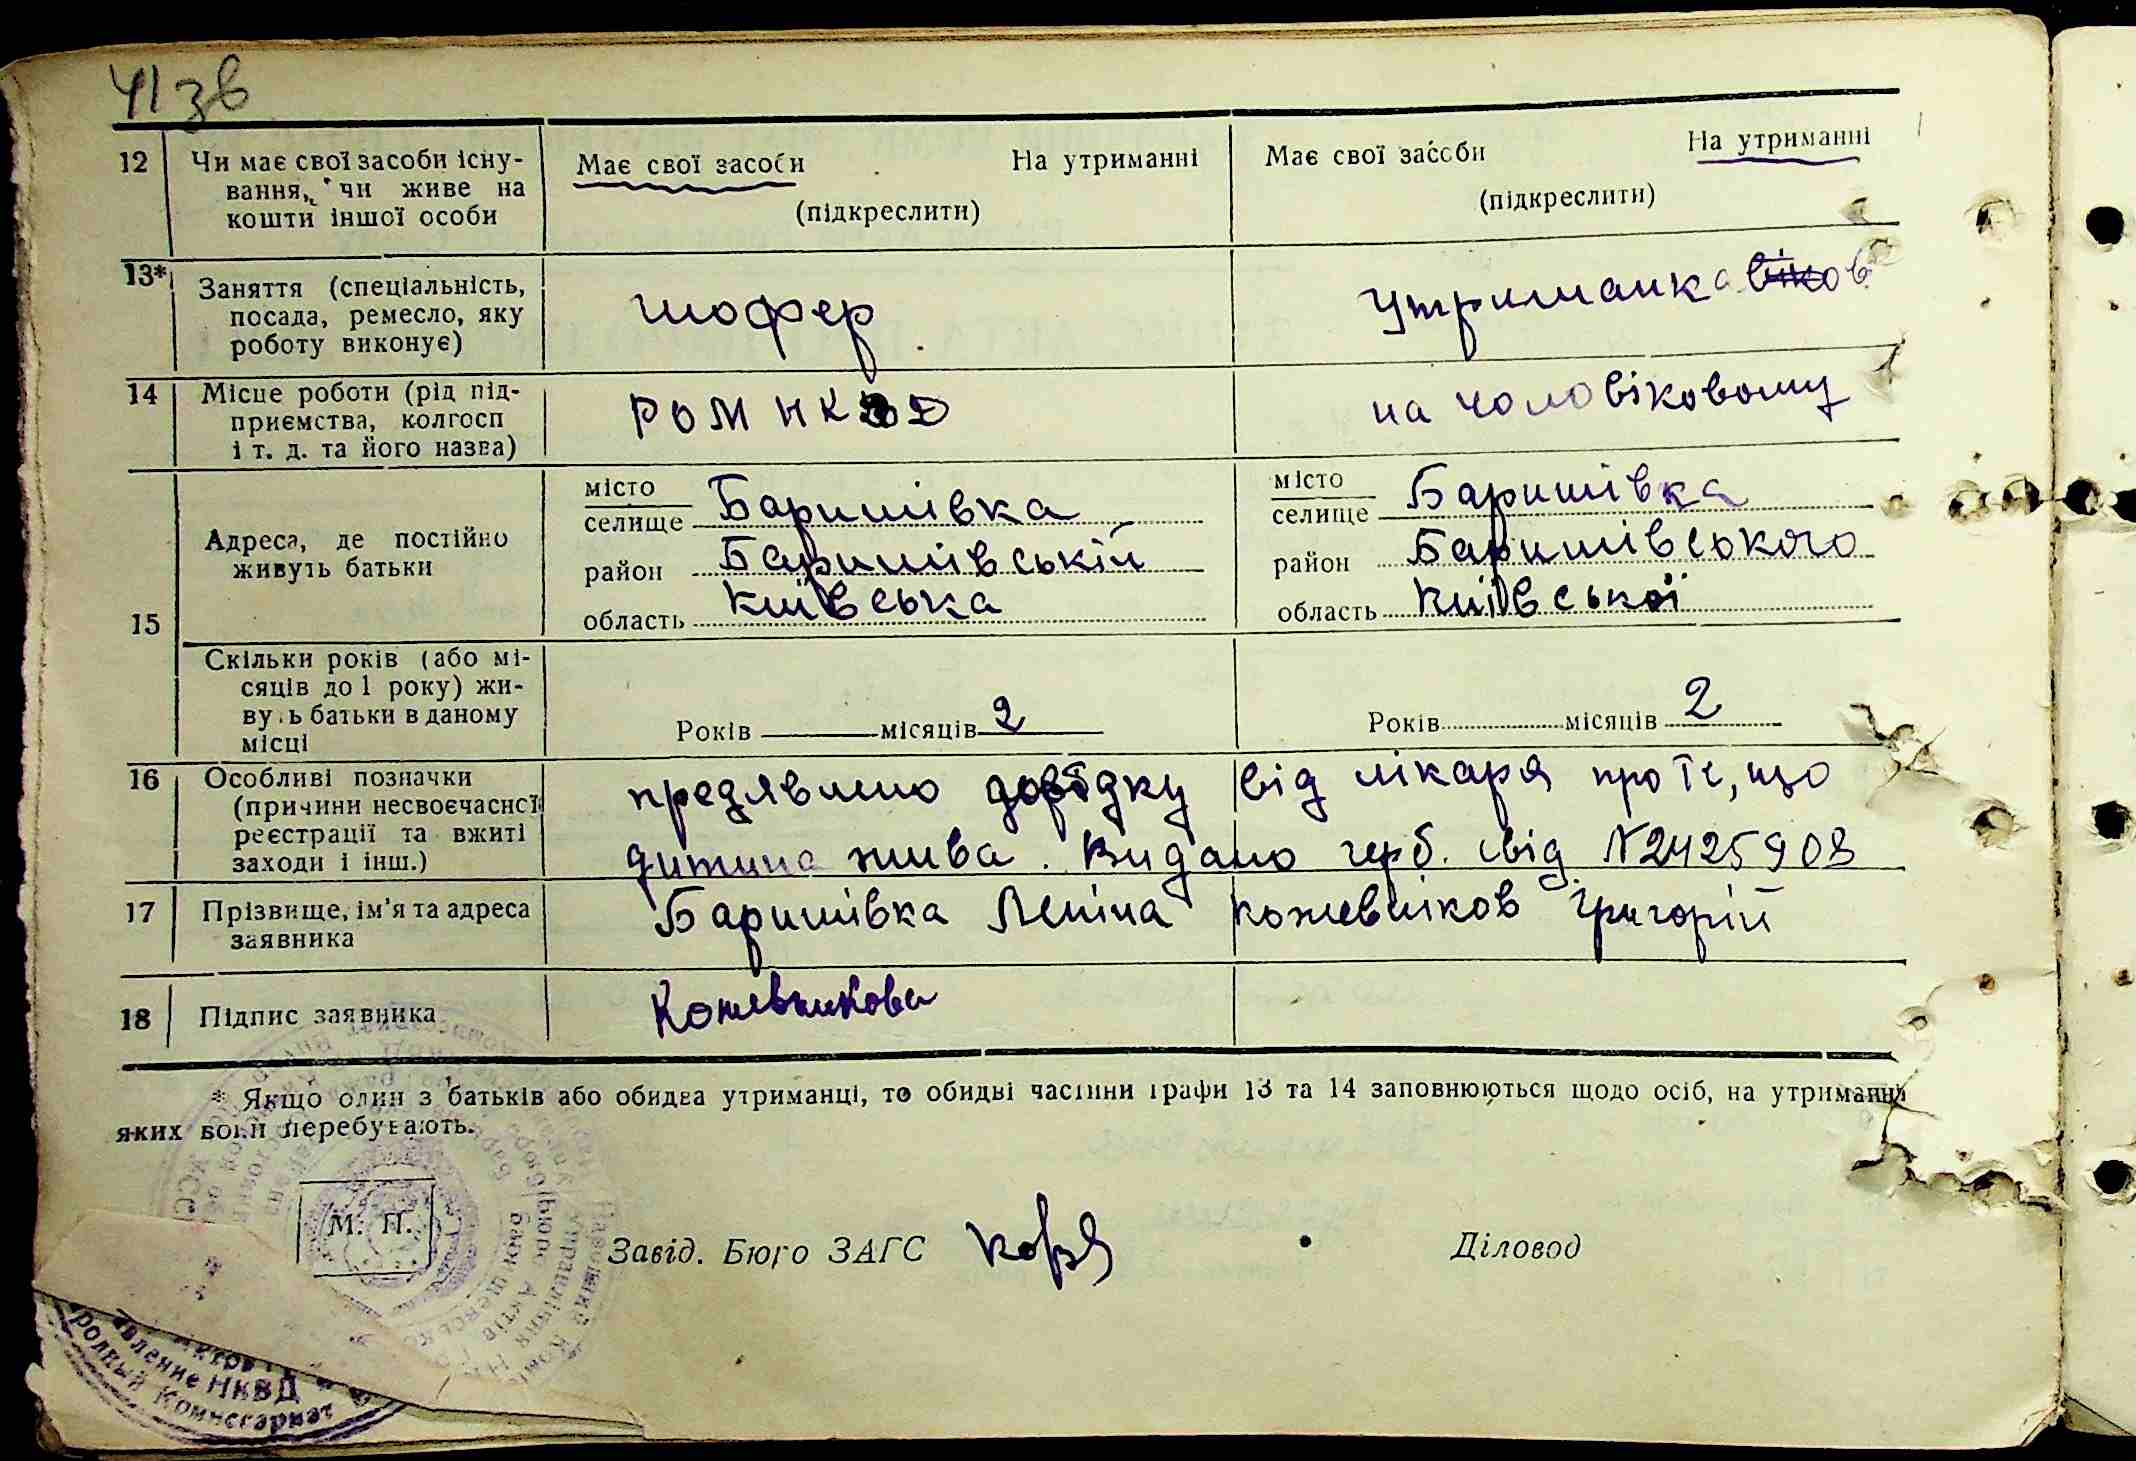 41 зв
12 Чи має свої засоби існу-
вання, чи живе на
кошти іншої особи
Має свої засоби На утриманні
(підкреслити)
Має свої засоби На утриманні
(підкреслити)
13* Заняття (спеціальність,
посада, ремесло, яку
роботу виконує)
шофер
Утриманка
14 Місце роботи (рід під-
приємства, колгосп
і т. д. та його назва)
на чоловіковому
15 Адреса, де постійно
живуть батьки
місто
селище Баришівка
район Баришівській
область Київська
місто
селище Баришівка
район Баришівського
область Київської
Скільки років (або мі-
сяців до 1 року) жи-
вуть батьки в даному
місці
Років місяців 2
Років місяців 2
16 Особливі позначки
(причини несвоєчасної
реєстрації та вжиті
заходи і інш.)
предявлено довідку від лікаря про те, що
дитина жива. Видано герб. свід N2425908
17 Прізвище, ім'я та адреса
заявника
Баришівка Леніна Кожевніков Григорій
18 Підпис заявника
Кожевникова
* Якщо один з батьків або обидва утриманці, то обидві частини графи 13 та 14 заповнюються щодо осіб, на утриманні
яких вони перебувають.
М. П.
Завід. Бюро ЗАГС
Діловод
вление НКВД
родный Комиссариат